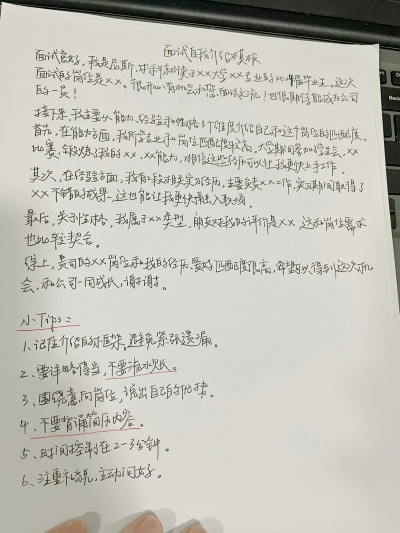 面试自我介绍模板
面试官好,我是尼斯,本科就读于××大学××专业的2024届毕业生。这次
面试的岗位是××。很开心有机会和您面试交流!也很期待能成为公司
的一员!
接下来,我主要从能力、经验和性格3个维度介绍自己和这个岗位的匹配度。
首先,在能力方面,我所学专业和岗位匹配度较高,大学期间参加学生会、××
比赛,锻炼了我的××、××能力,相信这些经历可以让我更快上手工作。
其次,在经验方面,我有一段相关实习经历,主要负责××工作,实习期间取得了
××不错的成果,这也能让我更快融入职场。
最后,关于性格,我属于××类型,朋友对我的评价是××,这和岗位需求
也比较契合。
综上,贵司的××岗位和我的经历、爱好匹配度很高,希望可以得到这次机
会,和公司一同成长,谢谢。
小Tips:
1、记住介绍的框架,避免紧张遗漏。
2、要详略得当,不要流水账。
3、围绕意向岗位,说出自己的优势。
4、不要背诵简历内容。
5、时间控制在2-3分钟。
6、注重礼貌,主动问好。